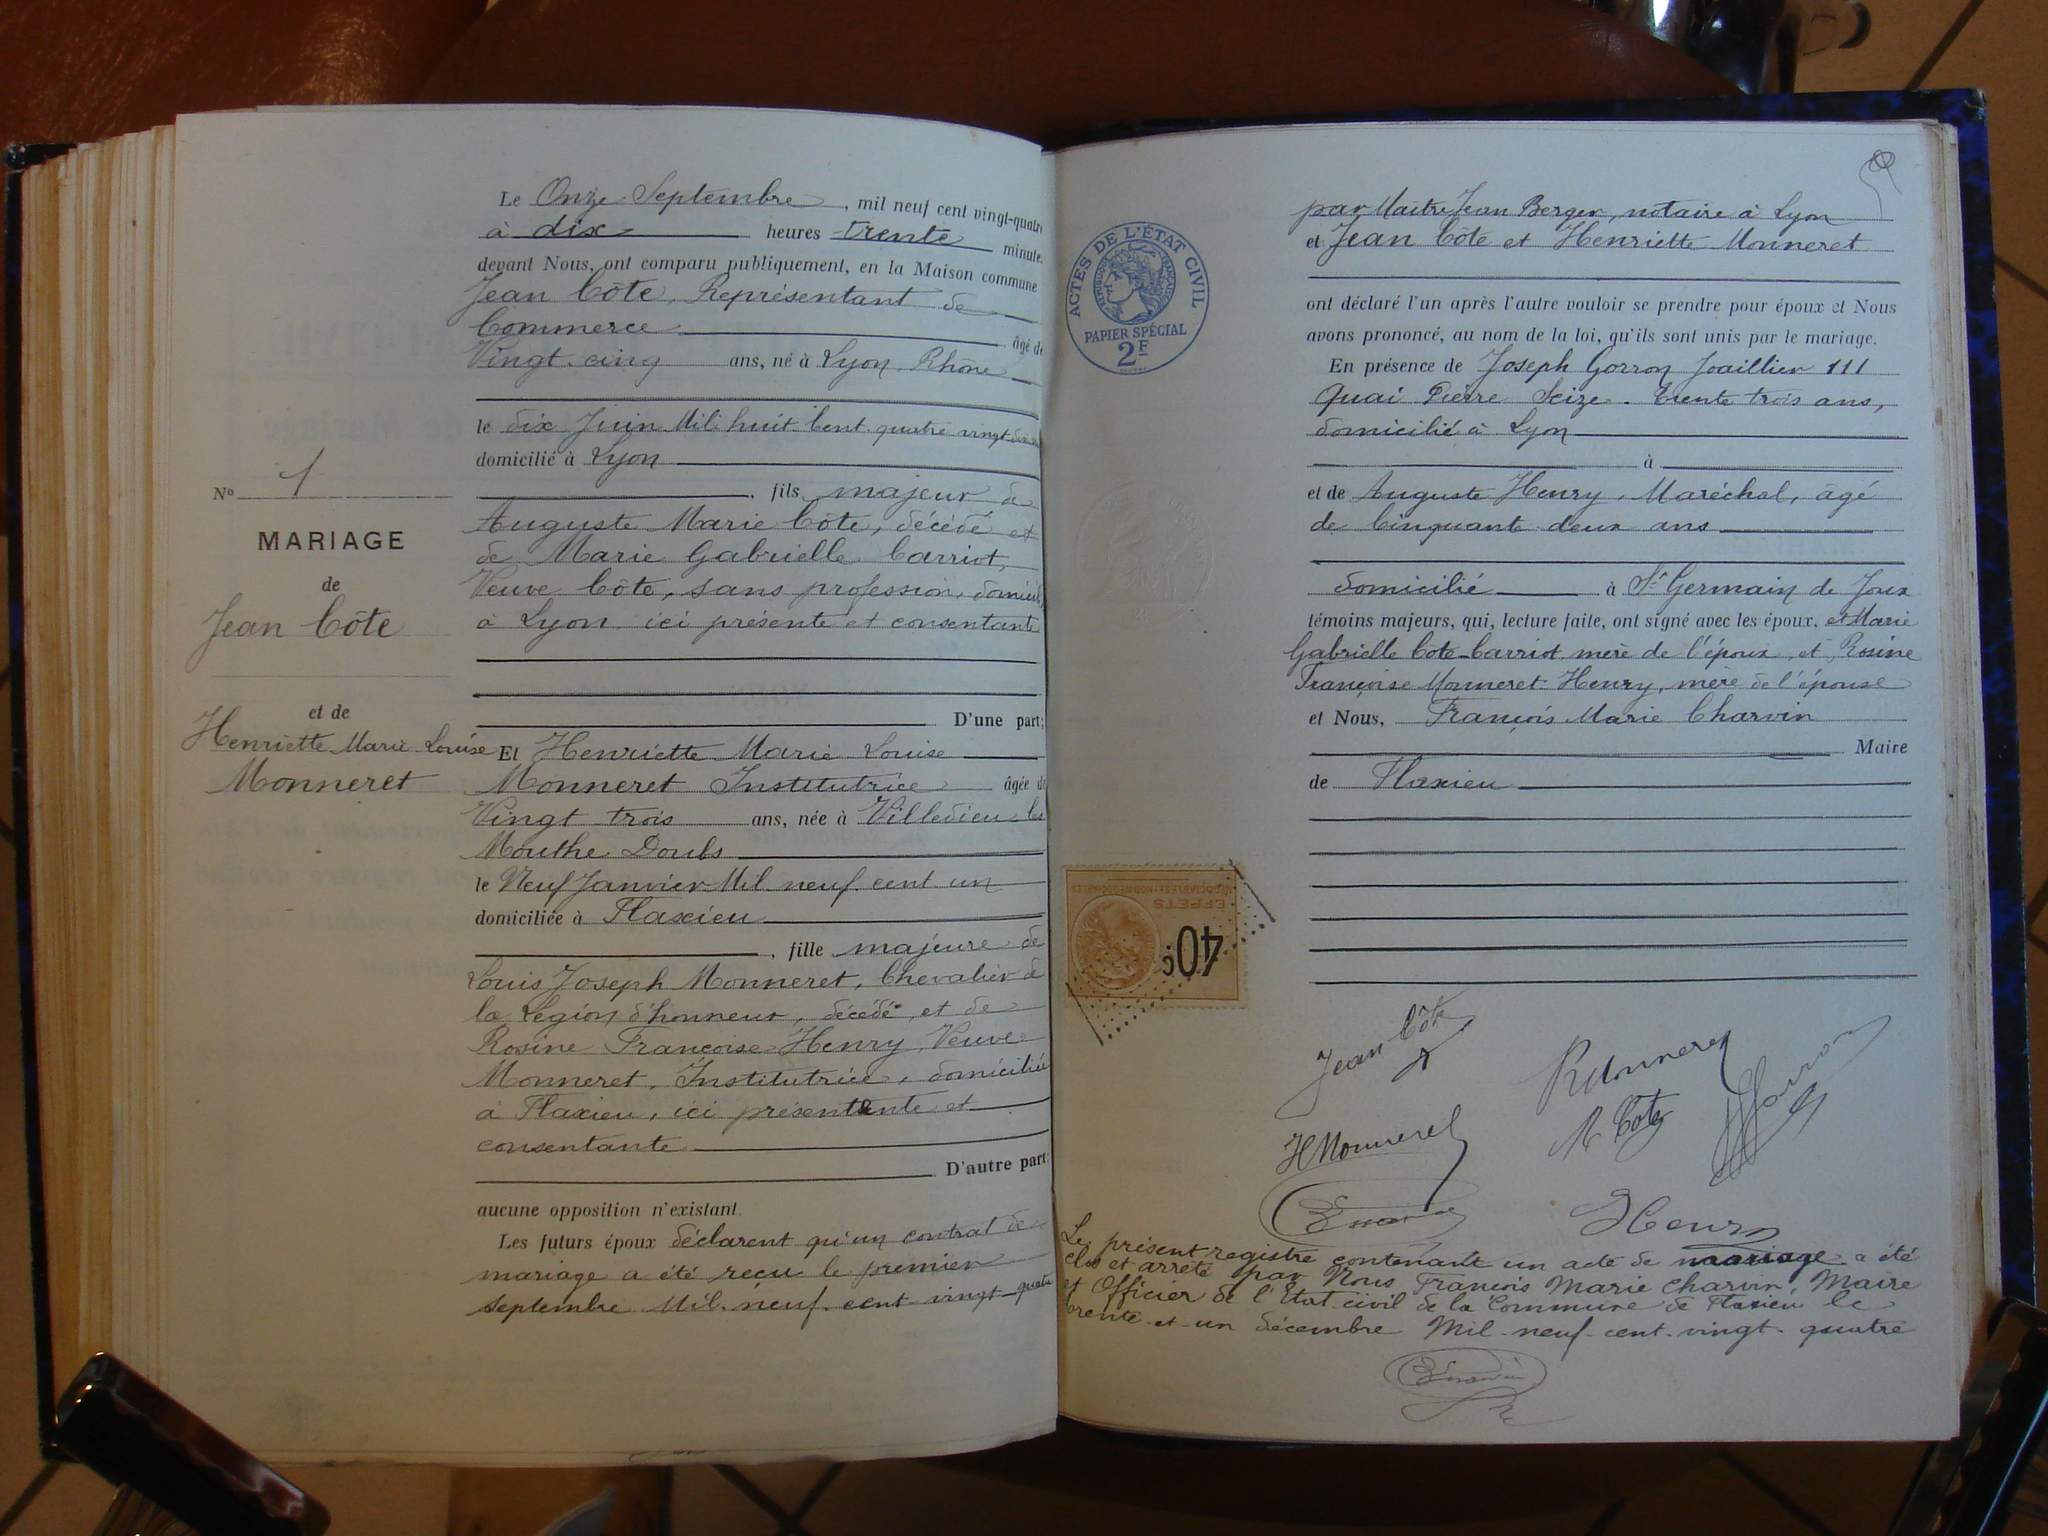 Le Onze Septembre, mil neuf cent vingt-quatre
à dix heures trente minutes
devant Nous, ont comparu publiquement, en la Maison commune
Jean Côte, Représentant de
Commerce âgé de
Vingt-cinq ans, né à Lyon, Rhône
le dix Juin Mil huit Cent quatre vingt dix
domicilié à Lyon
, fils majeur de
Auguste Marie Côte, décédé et
de Marie Gabrielle Carriot,
Veuve Côte, sans profession, domiciliée
à Lyon ici présente et consentante
D'une part;
Nº 1
MARIAGE
de
Jean Côte
et de
Henriette Marie Louise
Monneret
Et Henriette Marie Louise
Monneret Institutrice âgée de
Vingt trois ans, née à Villedieu les
Mouthe Doubs
le Neuf Janvier Mil neuf cent un
domiciliée à Flaxieu
, fille majeure de
Louis Joseph Monneret, Chevalier de
la Légion d'honneur, décédé, et de
Rosine Françoise Henry, Veuve
Monneret, Institutrice, domiciliée
à Flaxieu, ici et
consentante
D'autre part
aucune opposition n'existant.
Les futurs époux déclarent qu'un contrat de
mariage a été reçu le premier
septembre Mil neuf cent vingt quatre
par Maître Jean Berger, notaire à Lyon
et Jean Côte et Henriette Monneret
ACTES DE L'ÉTAT CIVIL
RÉPUBLIQUE FRANÇAISE
PAPIER SPÉCIAL
2F
ont déclaré l'un après l'autre vouloir se prendre pour époux et Nous
avons prononcé, au nom de la loi, qu'ils sont unis par le mariage.
En présence de Joseph Gorron Joaillier 111
Quai Pierre Scize. Trente trois ans,
domicilié à Lyon
à
et de Auguste Henry, Maréchal, âgé
de Cinquante deux ans
domicilié à St Germain de Joux
témoins majeurs, qui, lecture faite, ont signé avec les époux, et Marie
Gabrielle Côte-Carriot mère de l'époux, et Rosine
Françoise Monneret-Henry, mère de l'épouse
et Nous, François Marie Charvin
Maire
de Flaxieu
EFFETS
40c
Jean Côte
RMonneret
Gorron
HMonneret
M Côte
Henry
Le présent registre contenant un acte de mariage a été
clos et arrêté par Nous François Marie Charvin, Maire
et Officier de l'État civil de la Commune de Flaxieu le
trente et un décembre Mil neuf cent vingt quatre